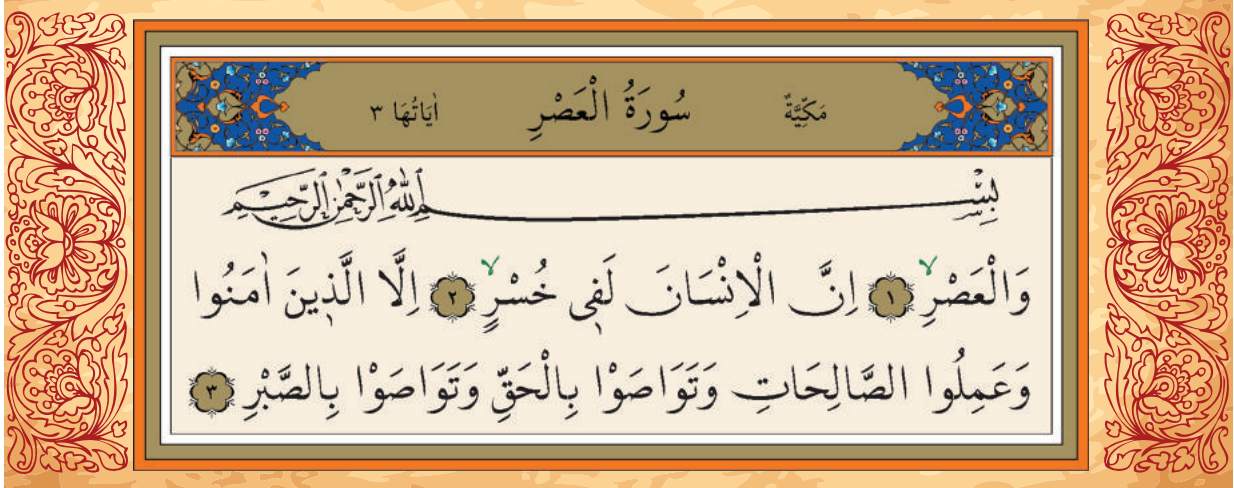 مَكِّيَّةٌ سُورَةُ الْعَصْرِ اٰيَاتُهَا ٣
بِسْمِ اللّٰهِ الرَّحْمٰنِ الرَّحِيمِ
وَالْعَصْرِۙ ١ اِنَّ الْاِنْسَانَ لَفٖى خُسْرٍۙ ٢ اِلَّا الَّذٖينَ اٰمَنُوا
وَعَمِلُوا الصَّالِحَاتِ وَتَوَاصَوْا بِالْحَقِّ وَتَوَاصَوْا بِالصَّبْرِ ٣